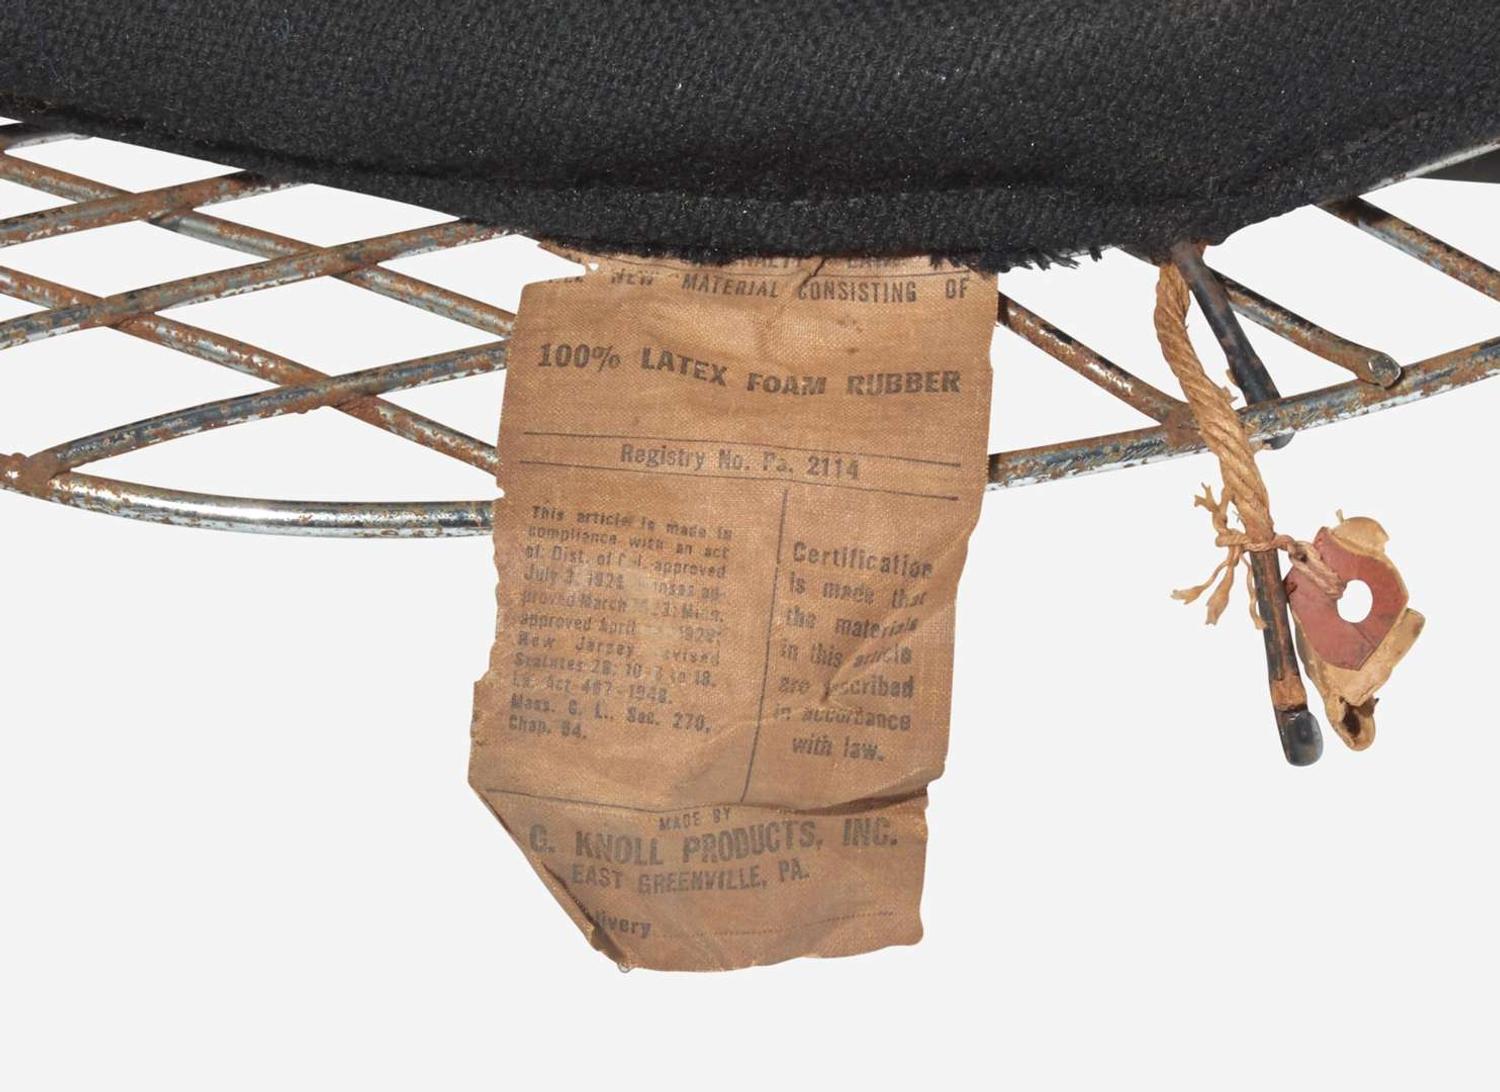 NEW MATERIAL CONSISTING OF
100% LATEX FOAM RUBBER
Registry No. Pa. 2114
This article is made in
compliance with an act
of Dist. of approved
July 3,
proved March
approved April 1929;
New Jersey
Statutes 26: 10- to 18.
La. Act 467-1948.
Mass. G. L., Sec. 270,
Chap. 94.
Certification
is made that
the materials
in this article
are
in accordance
with law.
MADE BY
G. KNOLL PRODUCTS, INC.
EAST GREENVILLE, PA.
livery